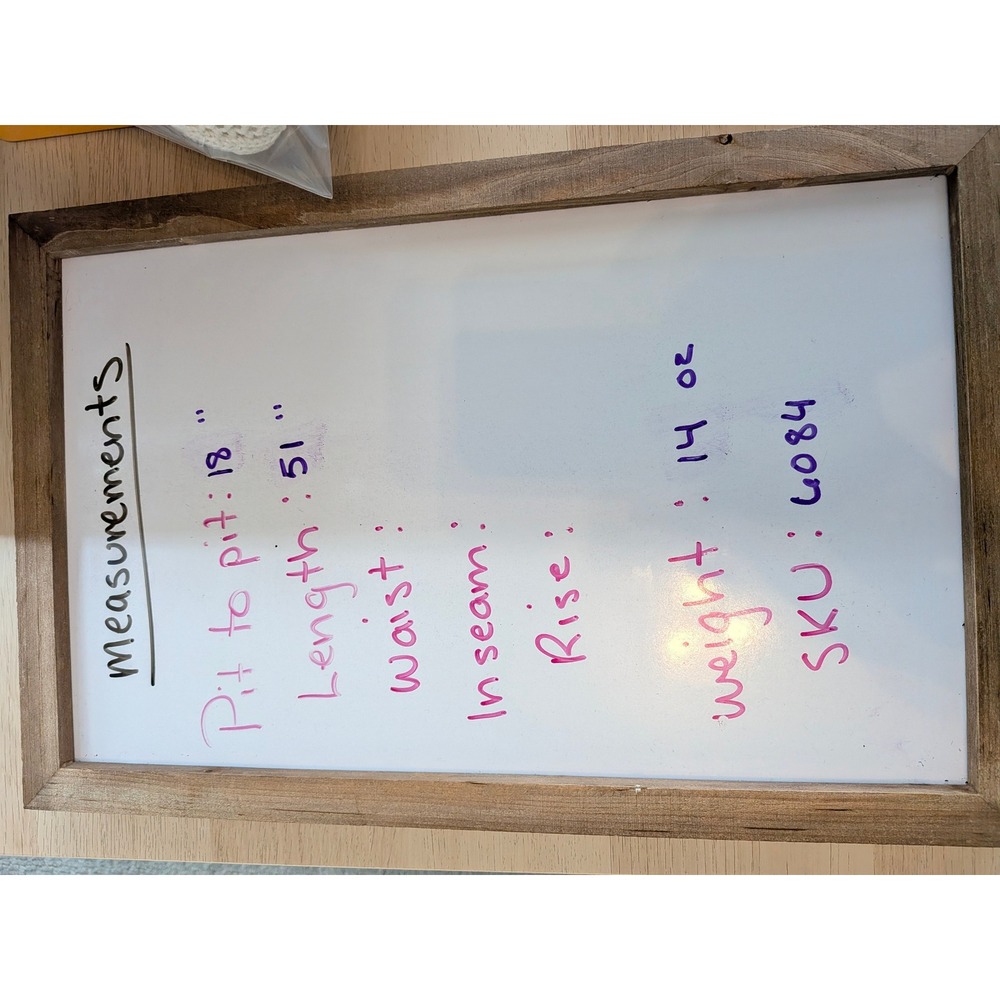 measurements
Pit to pit: 18"
Length: 51"
Waist:
Inseam:
Rise:
weight: 14 oz
SKU: 6084